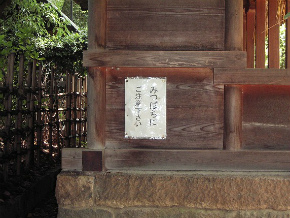 みつばちに
ご注意下さい